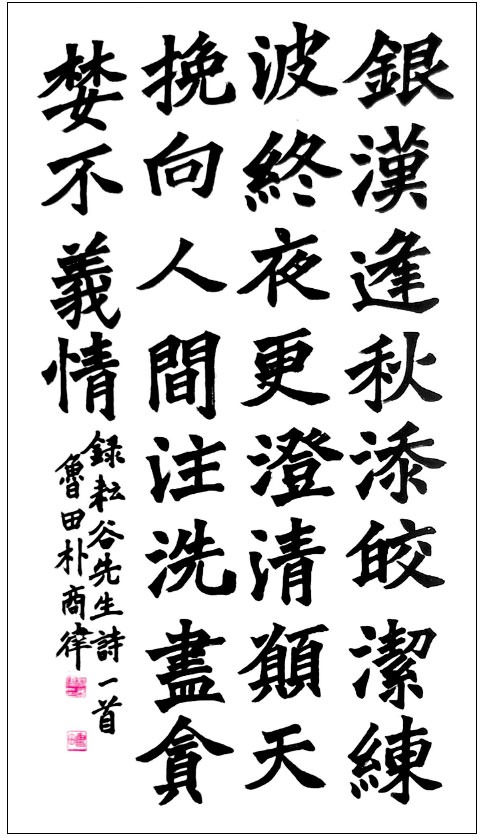 銀漢逢秋添皎潔練
波終夜更澄清願天
挽向人間注洗盡貪
婪不義情
録耘谷先生詩一首
魯田朴商